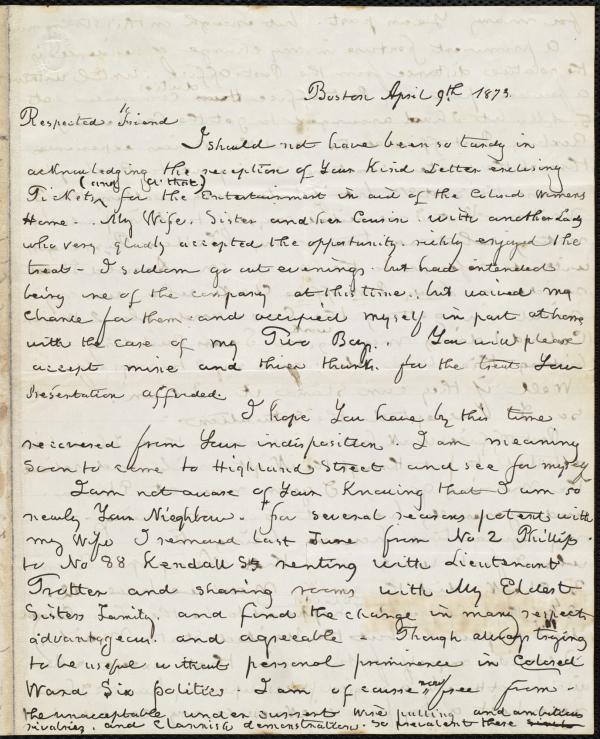 Boston April 9th 1873.
Respected Friend
I should not have been so tardy in
acknowledging the reception of Your Kind Letter enclosing
Tickets (and a' that) for the Entertainment in aid of the Colord Womens
Home. My Wife, Sister and her Cousin with another Lady
who very gladly accepted the opportunity, richly enjoyed the
treat - I seldom go out evenings but had intended
being one of the company at this time, but waived my
chance for them and occupied myself in part at home
with the care of my Two Boys. You will please
accept mine and thier thanks for the treat Your
Presentation afforded.
I hope You have by this time
recovered from Your indisposition. I am meaning
soon to come to Highland Street and see for myself
I am not aware of Your Knowing that I am so
nearly Your Nieghbour. for several reasons potent with
my Wife I removed last June from No 2 Phillips
to No 88 Kendall St renting with Lieutenant
Trotter and sharing rooms with My Eldest
Sisters Family. and find the change in many respects
advantageous and agreeable - Though always trying
to be useful without personal prominence in Colored
Ward Six politics. I am of course now free from
the unacceptable under current wire pulling and ambitious
rivalries, and clannish demonstration, so prevalent there